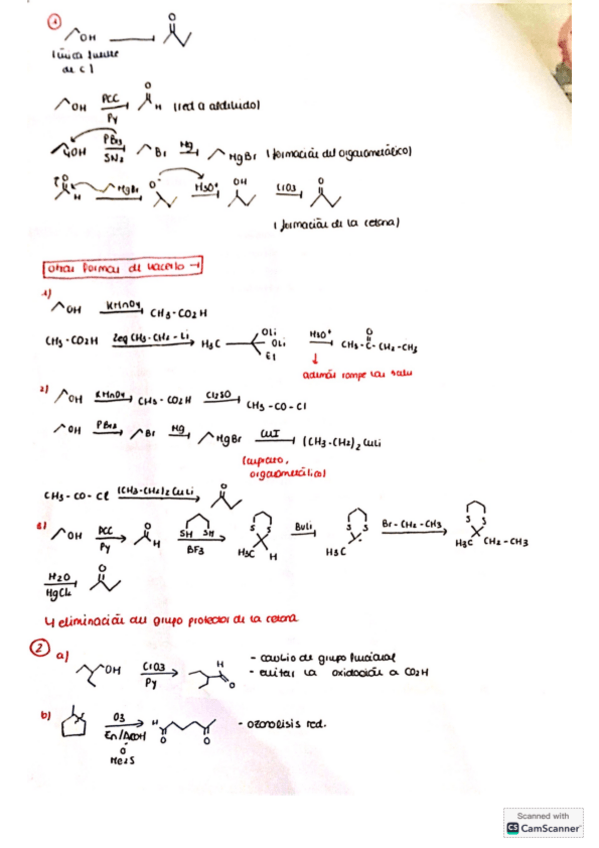 1
OH
única fuente
de C)
O
OH PCC Py O H (red a aldehído)
OH PBr3 SN2 Br Mg MgBr (formación del organometálico)
O H MgBr O⁻ H3O⁺ OH CrO3 O
(formación de la cetona)
otras formas de hacerlo →
1)
OH KMnO4 CH3-CO2H
CH3-CO2H 2eq CH3-CH2-Li H3C OLi OLi Et H3O⁺ CH3-C-CH2-CH3 O
↓
además rompe las sales
2)
OH KMnO4 CH3-CO2H Cl2SO CH3-CO-Cl
OH PBr3 Br Mg MgBr CuI (CH3-CH2)2CuLi
(cuprato,
organometálico)
CH3-CO-Cl (CH3-CH2)2CuLi O
3)
OH PCC Py O H SH SH BF3 S S H3C H BuLi S S H3C Br-CH2-CH3 S S H3C CH2-CH3
H2O HgCl2 O
↳ eliminación del grupo protector de la cetona
2
a) OH CrO3 Py H O
- cambio de grupo funcional
- evitar la oxidación a CO2H
b) O3 Zn/AcOH o Me2S H O O - ozonolisis red.
Scanned with
CS CamScanner